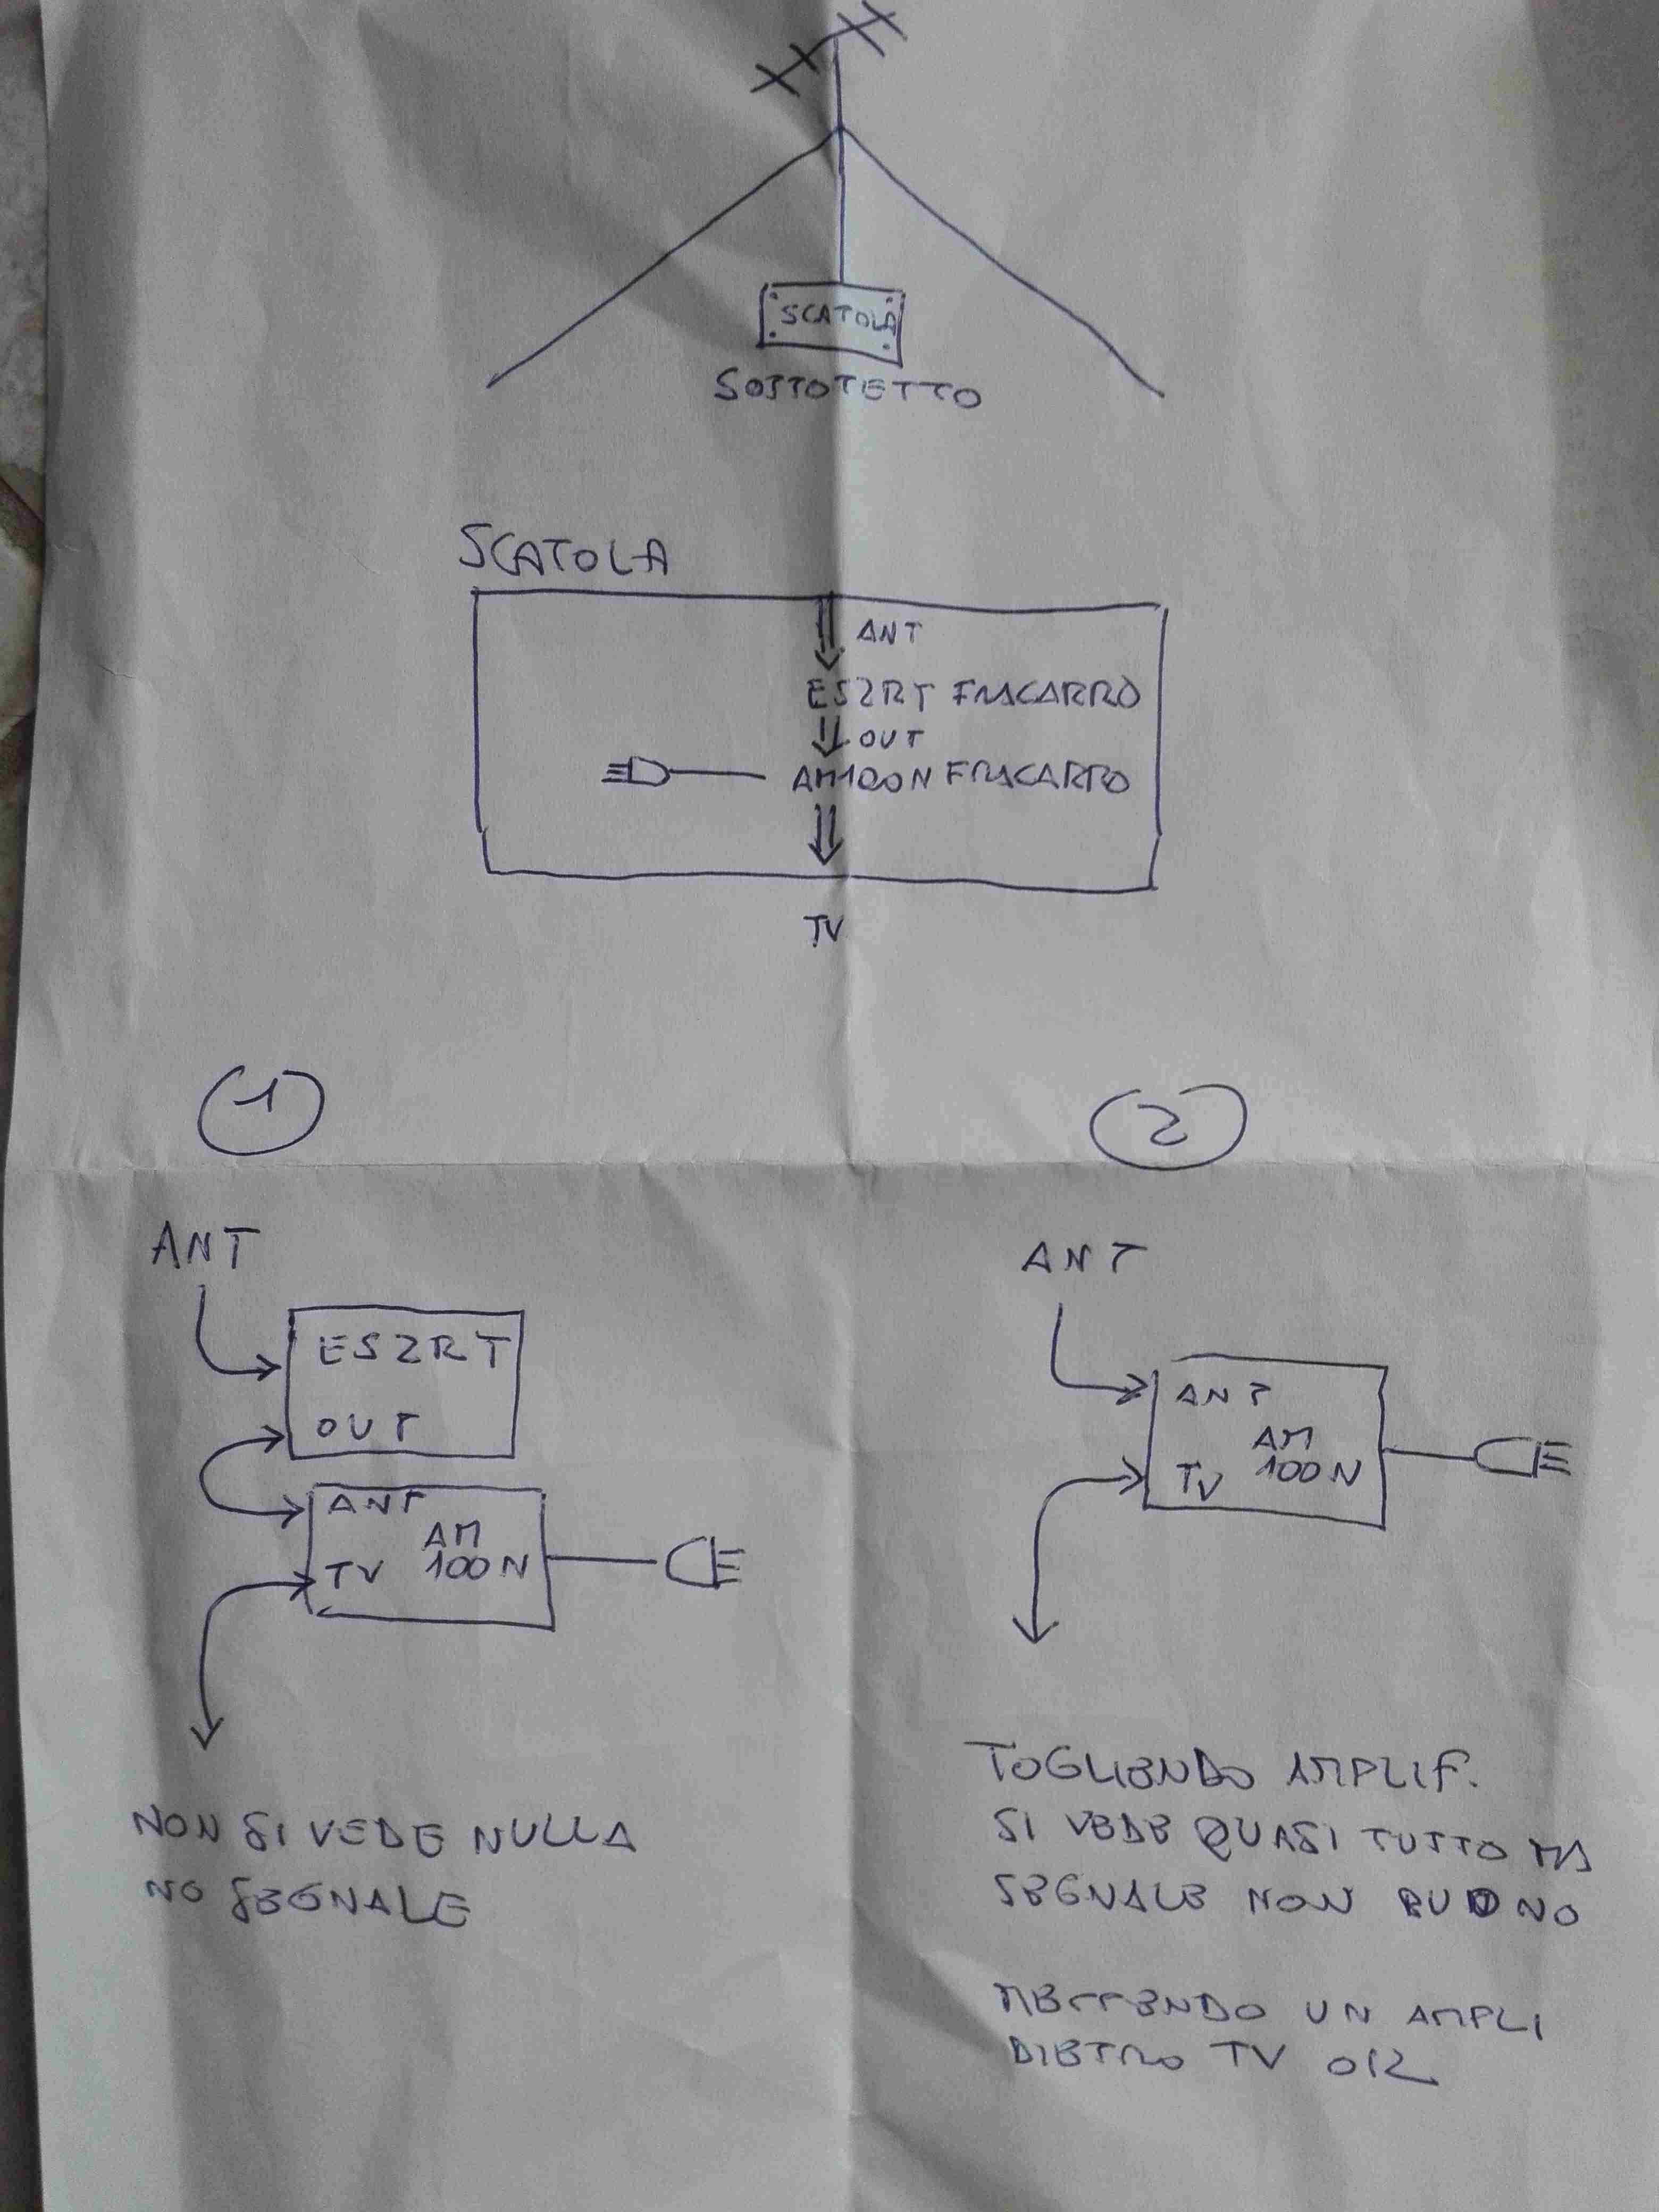 SCATOLA
SOTTOTETTO
SCATOLA
ANT
ES2RT FRACARRO
OUT
AM100N FRACARRO
TV
1
2
ANT
ES2RT
OUT
ANT
AM
100N
TV
NON SI VEDE NULLA
NO SEGNALE
ANT
ANT
AM
100N
TV
TOGLIENDO AMPLIF.
SI VEDE QUASI TUTTO MA
SEGNALE NON BUONO
METTENDO UN AMPLI
DIETRO TV OK